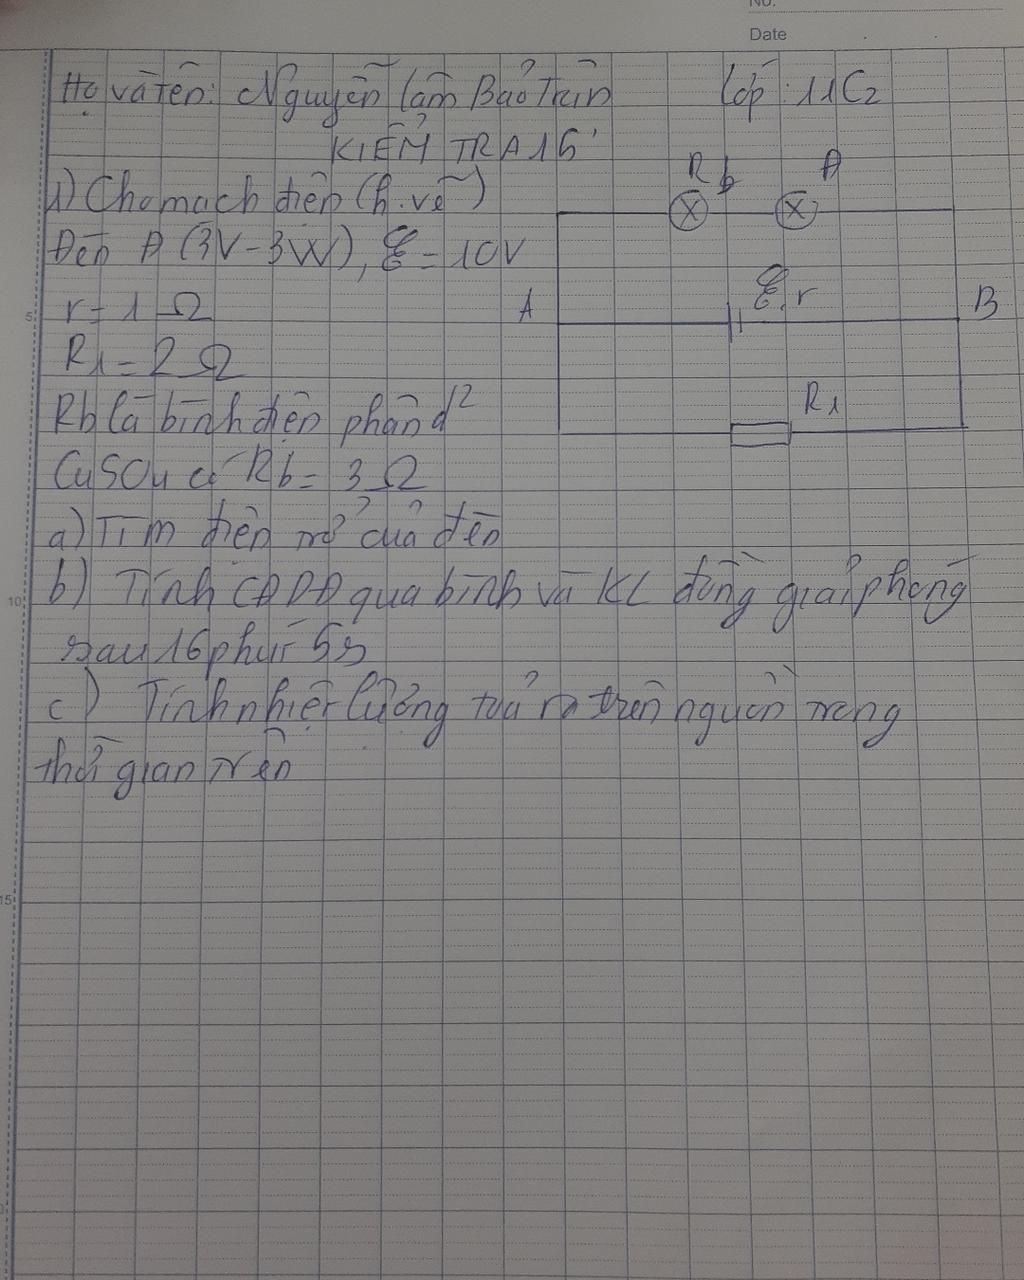 No.
Date
Họ và tên: Nguyễn Lâm Bảo Trân Lớp: 11C2
KIỂM TRA 15'
1) Cho mạch điện (h.vẽ)
Đèn Đ (3V-3W), ℰ = 10V
r = 1 Ω
R1 = 2 Ω
Rb là bình điện phân d²
CuSO4 có Rb = 3 Ω
a) Tìm điện trở của đèn
b) Tính CĐDĐ qua bình và KL đồng giải phóng
sau 16 phút 5s
c) Tính nhiệt lượng toả ra trên nguồn trong
thời gian trên
Rb Đ
A ℰ,r B
R1
5
10
15